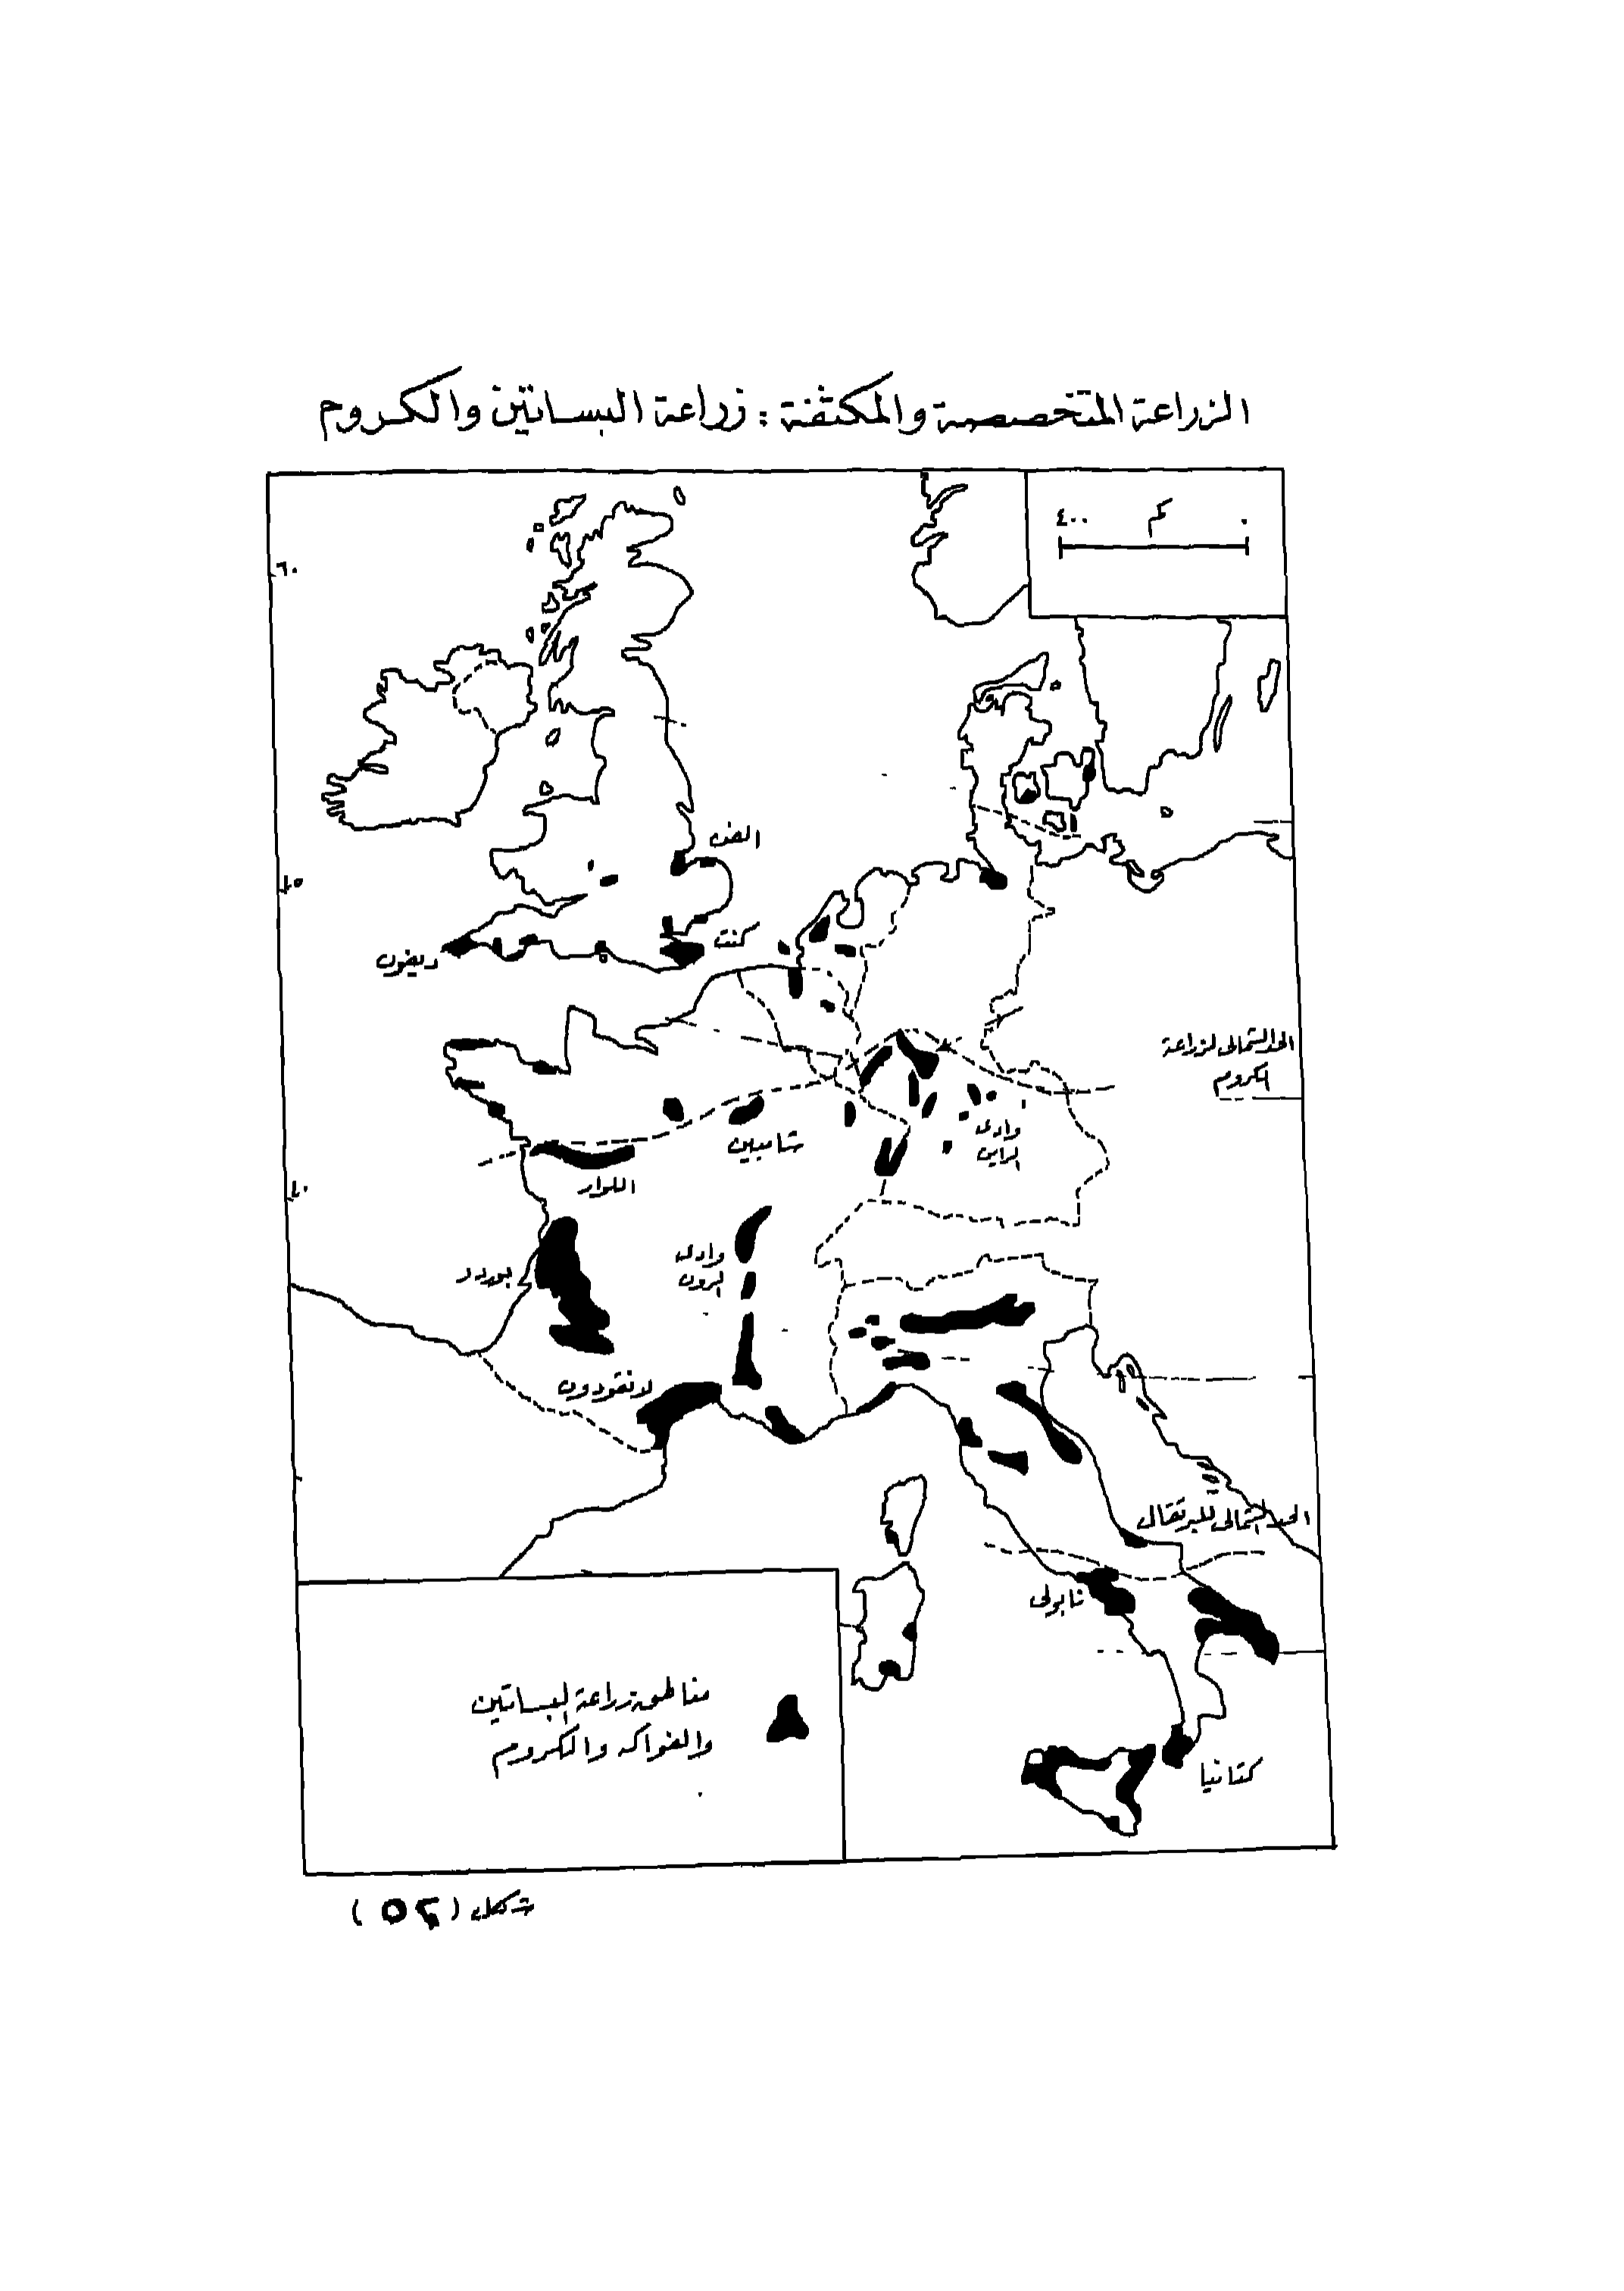 الزراعة المتخصصة والمكثفة : زراعة البساتين والكروم
٤٠٠ كم ٠
٦٠
الفن
٤٥
كنت
ديفون
الحد الشمالى لزراعة
الكروم
شامبين
وادى
الراين
اللوار
٤٠
وادى
الرون
بوردو
لانقودون
الحد الشمالى للبرتقال
نابولى
مناطق زراعة البساتين
والفواكه والكروم
كتانيا
شكل (٥٢)